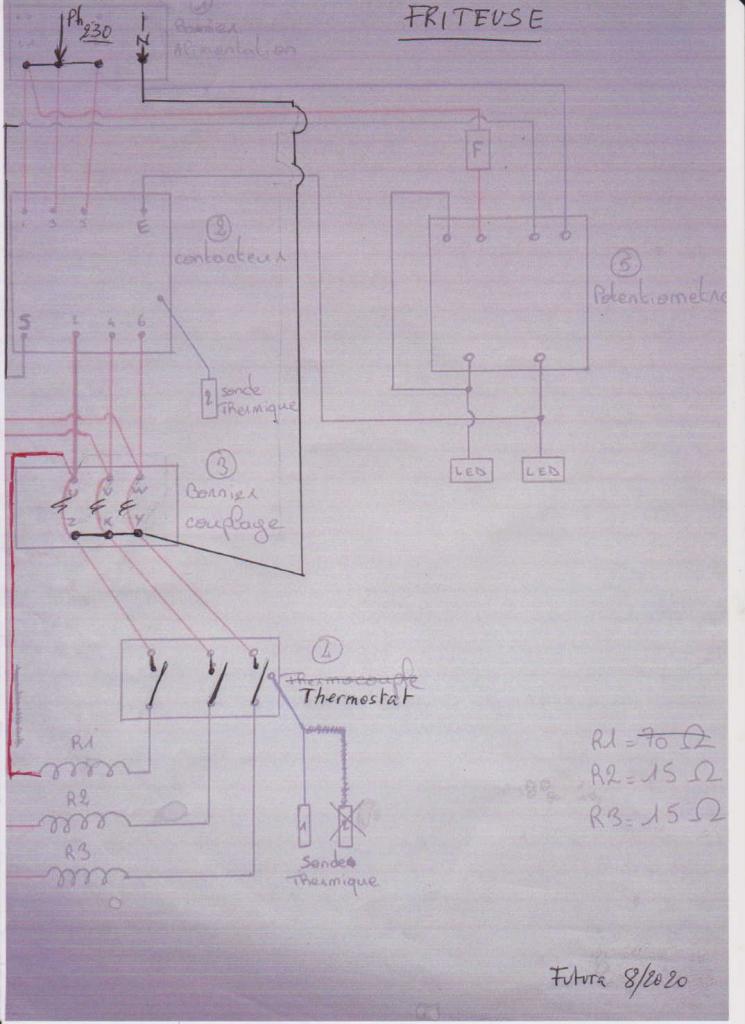 FRITEUSE
Ph 230
N
1
Bornier
Alimentation
F
1 3 5 E
2
contacteur
5
Potentiometre
S 2 4 6
2
sonde
Thermique
LED LED
3
Bornier
couplage
U V W
Z X Y
4
Thermocouple
Thermostat
R1
R2
R3
R1 = 70 Ω
R2 = 15 Ω
R3 = 15 Ω
1
Sonde
Thermique
Futura 8/2020